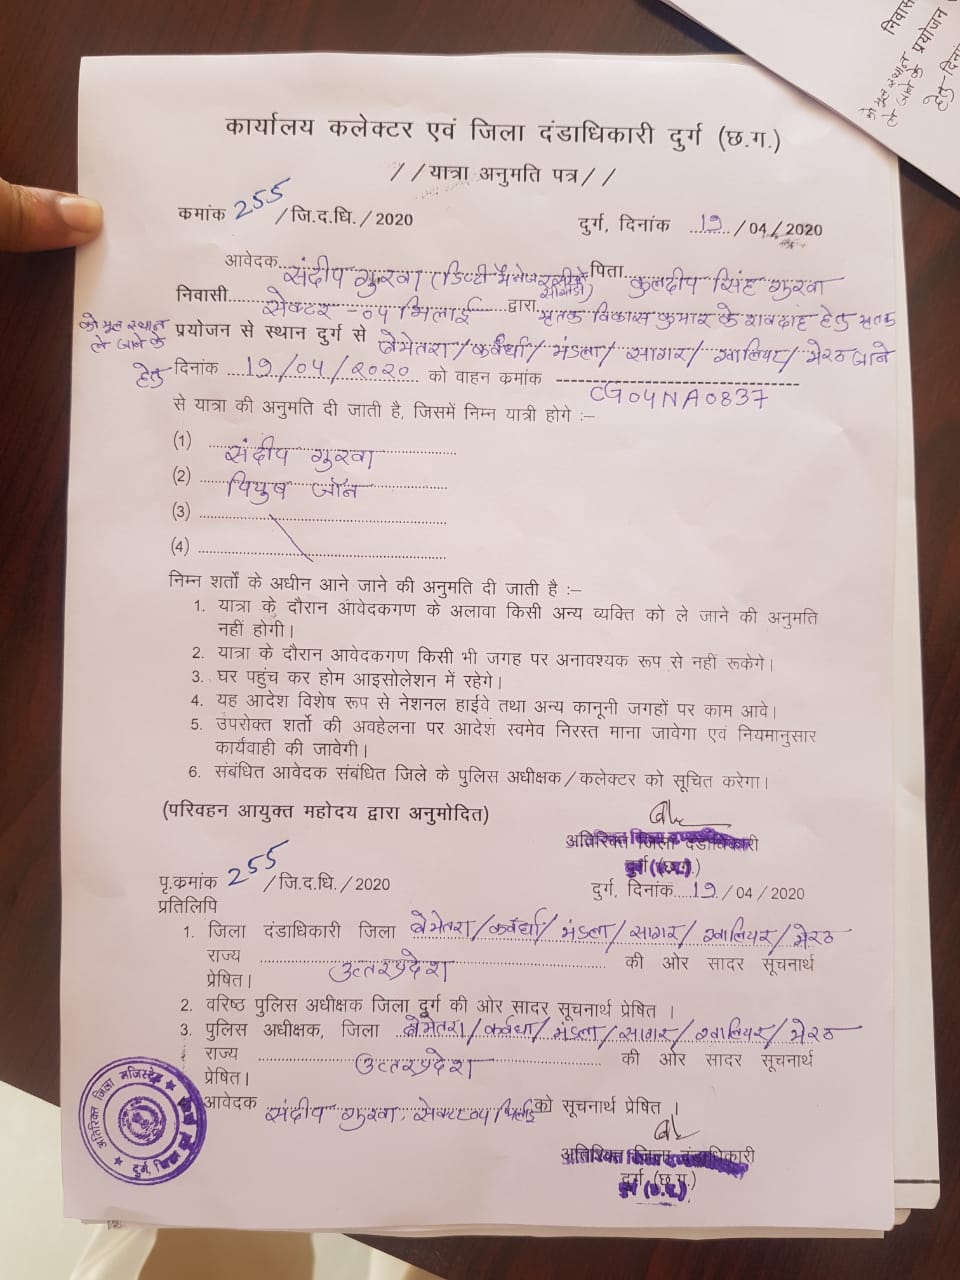 कार्यालय कलेक्टर एवं जिला दंडाधिकारी दुर्ग (छ.ग.)
//यात्रा अनुमति पत्र//
कमांक 255 /जि.द.धि./2020 दुर्ग, दिनांक 19/04/2020
आवेदक संदीप गुरवा (डिप्टी मैनेजर पिता कुलदीप सिंह गुरवा
निवासी सेक्टर-04 भिलाई द्वारा मृतक विकास कुमार के शवदाह हेतु मृतक
को मूल स्थान ले जाने के हेतु
प्रयोजन से स्थान दुर्ग से बेमेतरा/कर्वर्धा/मंडला/सागर/ग्वालियर/मेरठ जाने
दिनांक 19/04/2020 को वाहन कमांक CG04NA0837
से यात्रा की अनुमति दी जाती है, जिसमें निम्न यात्री होगे :–
(1) संदीप गुरवा
(2) पियुष जॉन
(3)
(4)
निम्न शर्तों के अधीन आने जाने की अनुमति दी जाती है :–
1. यात्रा के दौरान आवेदकगण के अलावा किसी अन्य व्यक्ति को ले जाने की अनुमति
नहीं होगी।
2. यात्रा के दौरान आवेदकगण किसी भी जगह पर अनावश्यक रूप से नहीं रूकेगे।
3. घर पहुंच कर होम आइसोलेशन में रहेगे।
4. यह आदेश विशेष रूप से नेशनल हाईवे तथा अन्य कानूनी जगहों पर काम आवे।
5. उपरोक्त शर्तो की अवहेलना पर आदेश स्वमेव निरस्त माना जावेगा एवं नियमानुसार
कार्यवाही की जावेगी।
6. संबंधित आवेदक संबंधित जिले के पुलिस अधीक्षक/कलेक्टर को सूचित करेगा।
(परिवहन आयुक्त महोदय द्वारा अनुमोदित)
अतिरिक्त जिला दंडाधिकारी
दुर्ग (छ.ग.)
पृ.कमांक 255 /जि.द.धि./2020 दुर्ग, दिनांक 19/04/2020
प्रतिलिपि
1. जिला दंडाधिकारी जिला बेमेतरा/कर्वर्धा/मंडला/सागर/ग्वालियर/मेरठ
राज्य उत्तरप्रदेश की ओर सादर सूचनार्थ
प्रेषित।
2. वरिष्ठ पुलिस अधीक्षक जिला दुर्ग की ओर सादर सूचनार्थ प्रेषित ।
3. पुलिस अधीक्षक, जिला बेमेतरा/कर्वर्धा/मंडला/सागर/ग्वालियर/मेरठ
राज्य उत्तरप्रदेश की ओर सादर सूचनार्थ
प्रेषित।
आवेदक संदीप गुरवा, को सूचनार्थ प्रेषित ।
अतिरिक्त जिला दंडाधिकारी
दुर्ग (छ.ग.)
अतिरिक्त जिला मजिस्ट्रेट
निवास
को मूल स्थान
ले जाने के प्रयोजन
हेतु